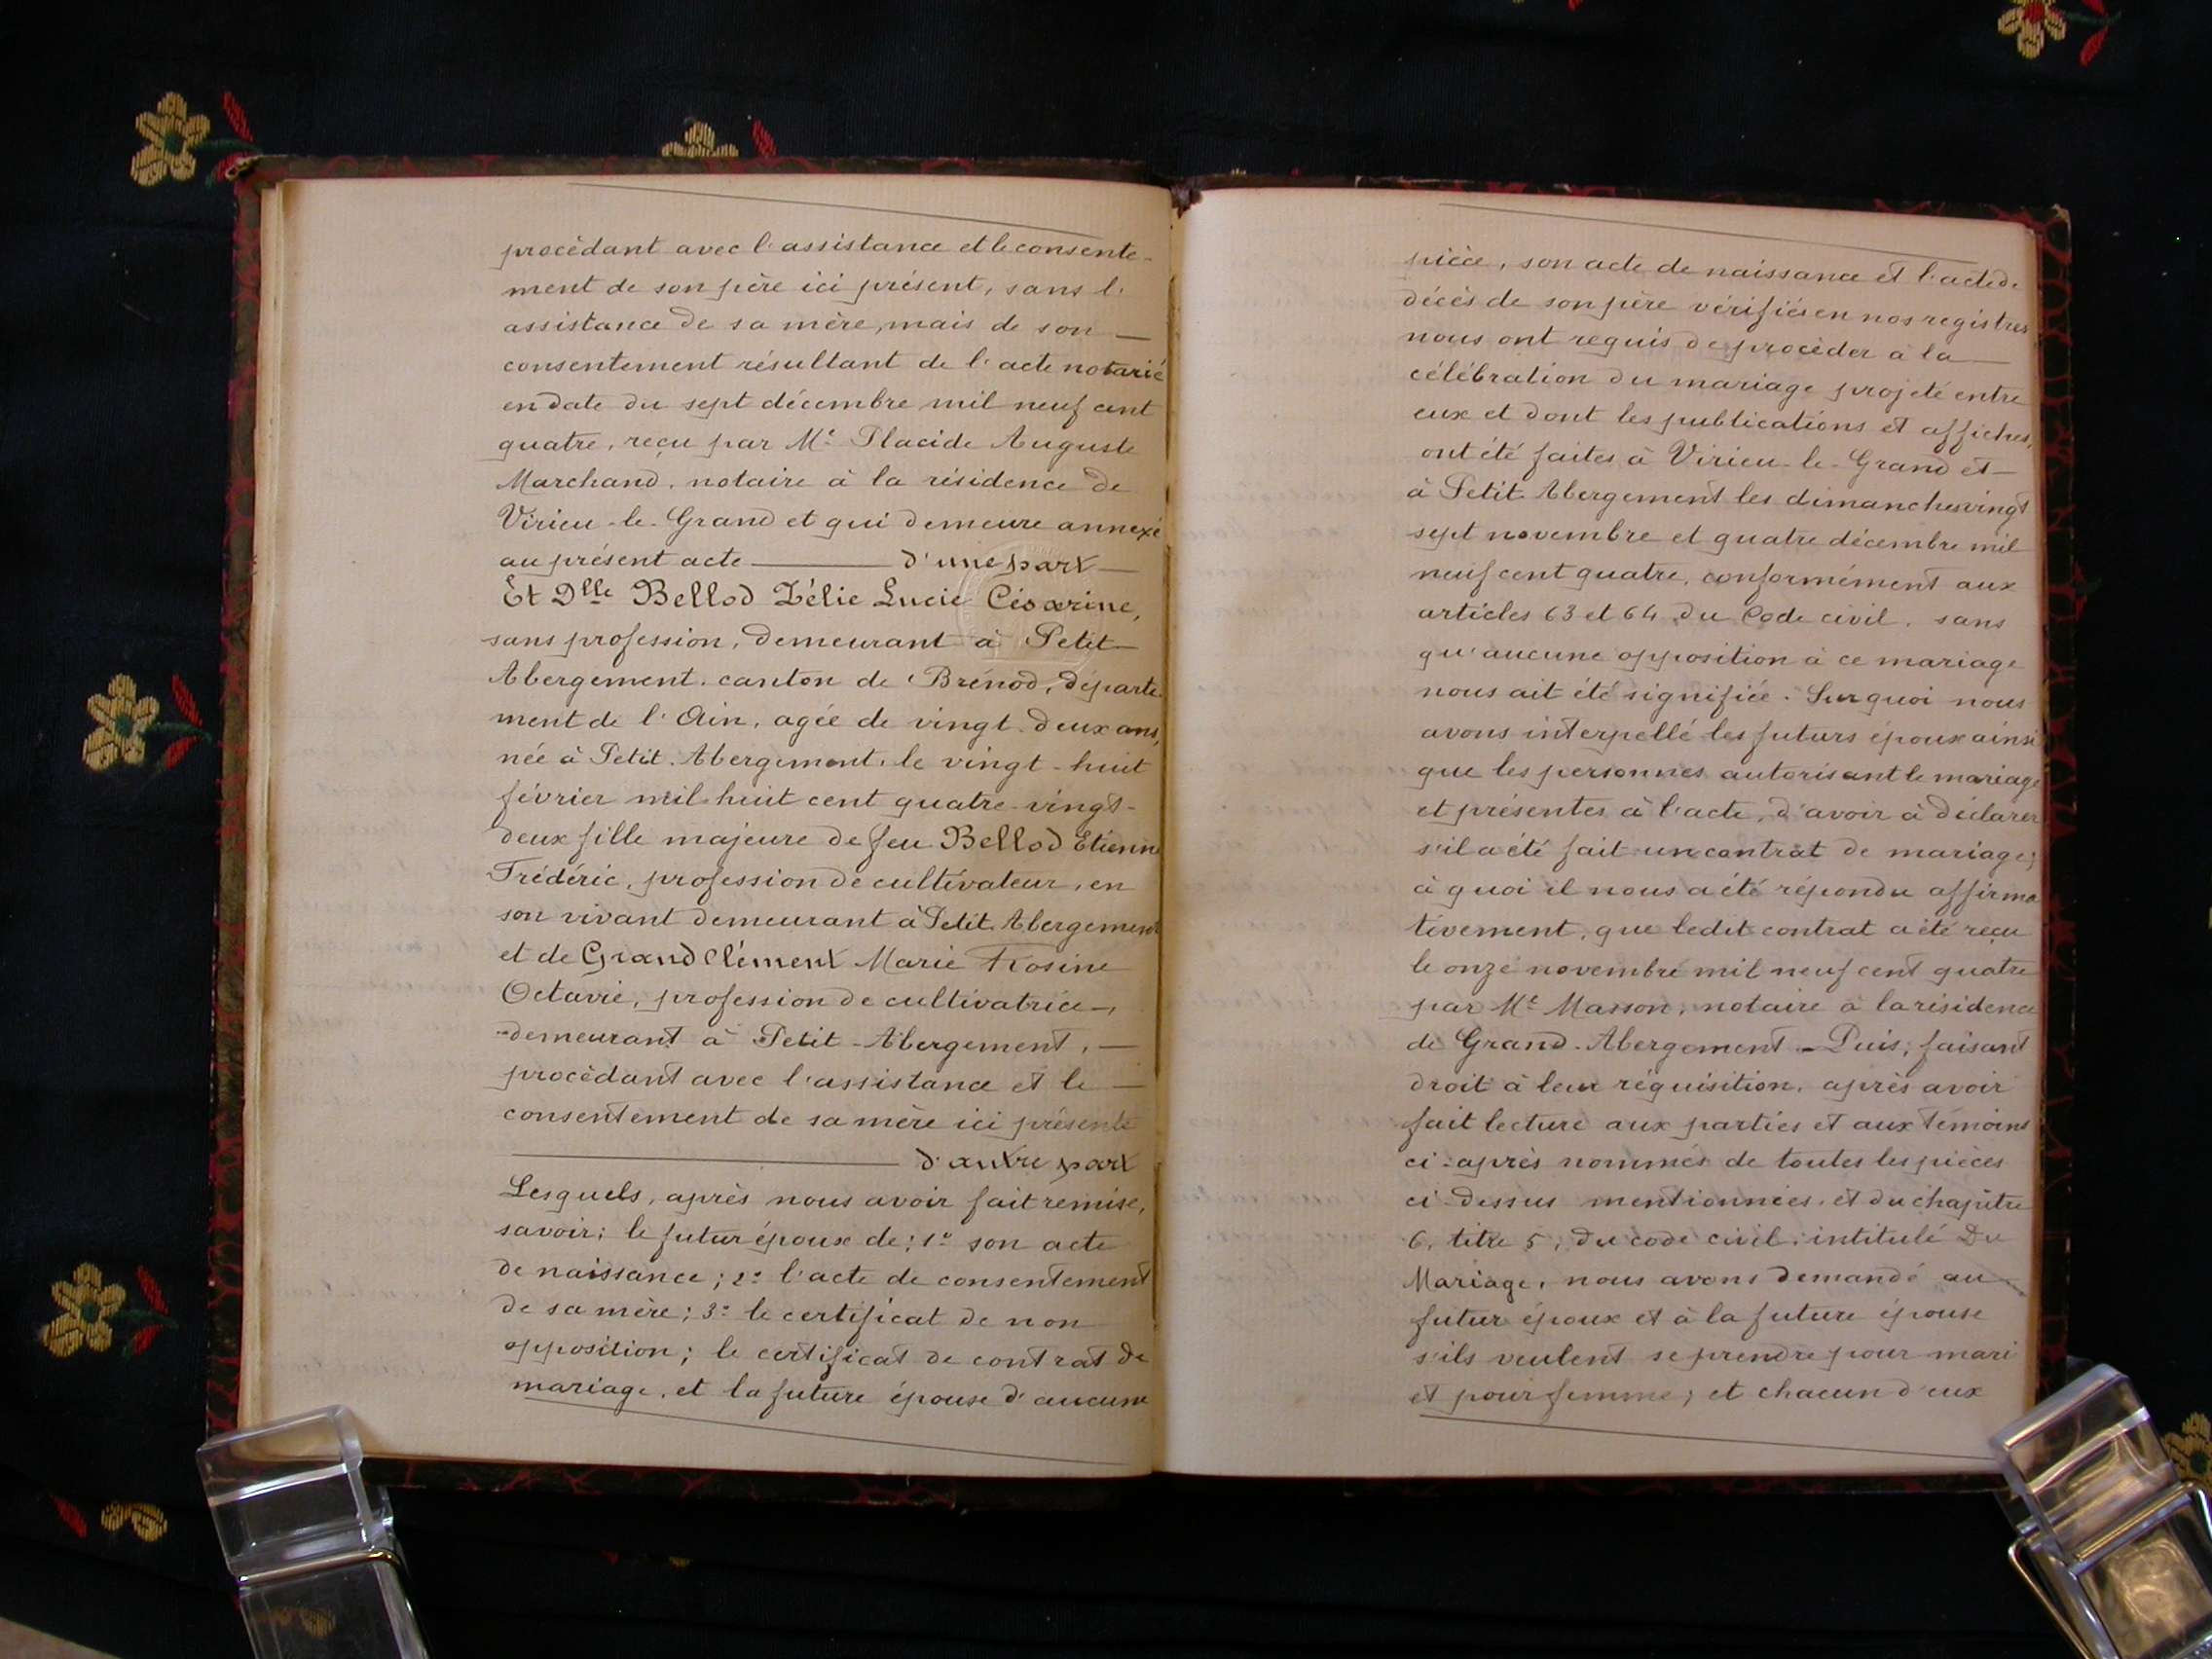 procèdant avec l'assistance et le consente-
ment de son père ici présent, sans l'
assistance de sa mère, mais de son
consentement résultant de l'acte notarié
en date du sept décembre mil neuf cent
quatre, reçu par Me Placide Auguste
Marchand, notaire à la résidence de
Virieu-le-Grand et qui demeure annexé
au présent acte d'une part
Et Dlle Bellod Zélie Lucie Césarine,
sans profession, demeurant à Petit
Abergement, canton de Brénod, départe-
ment de l'Ain, agée de vingt-deux ans,
née à Petit-Abergement, le vingt-huit
février mil huit cent quatre-vingt-
deux fille majeure de feu Bellod Etienne
Frédéric, profession de cultivateur, en
son vivant demeurant à Petit-Abergement
et de Grandclément Marie Rosine
Octavie, profession de cultivatrice,
demeurant à Petit-Abergement,
procèdant avec l'assistance et le
consentement de sa mère ici présente
d'autre part
Lesquels, après nous avoir fait remise,
savoir; le futur époux de; 1º son acte
de naissance; 2º l'acte de consentement
de sa mère; 3º le certificat de non
opposition; le certificat de contrat de
mariage, et la future épouse d'aucune
pièce, son acte de naissance et l'acte de
décès de son père vérifiés en nos registres
nous ont requis de procèder à la
célébration du mariage projeté entre
eux et dont les publications et affiches,
ont été faites à Virieu-le-Grand et
à Petit-Abergement les dimanches vingt
sept novembre et quatre décembre mil
neuf cent quatre, conformément aux
articles 63 et 64 du Code civil, sans
qu'aucune opposition à ce mariage
nous ait été signifiée. Sur quoi nous
avons interpellé les futurs époux ainsi
que les personnes autorisant le mariage
et présentes à l'acte, d'avoir à déclarer
s'il a été fait un contrat de mariage;
à quoi il nous a été répondu affirma
tivement, que ledit contrat a été reçu
le onze novembre mil neuf cent quatre
par Me Masson, notaire à la résidence
de Grand-Abergement - Puis, faisant
droit à leur réquisition, après avoir
fait lecture aux parties et aux témoins
ci-après nommés de toutes les pièces
ci-dessus mentionnées, et du chapitre
6, titre 5, du code civil, intitulé Du
Mariage, nous avons demandé au
futur époux et à la future épouse
s'ils veulent se prendre pour mari
et pour femme; et chacun d'eux